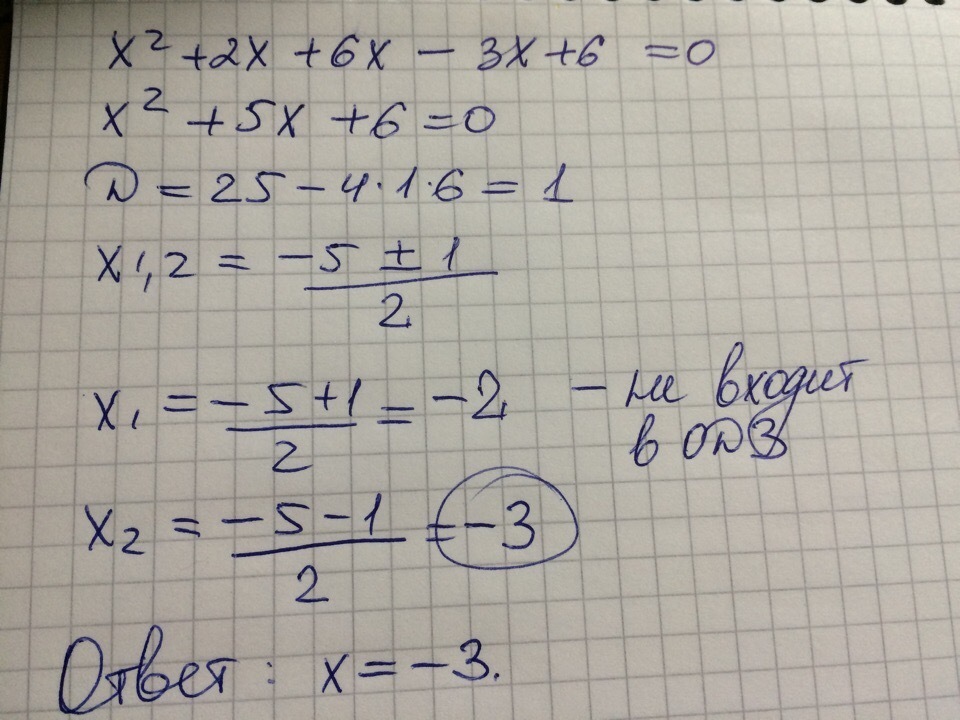 x² + 2x + 6x − 3x + 6 = 0
x² + 5x + 6 = 0
D = 25 − 4·1·6 = 1
x1,2 = (−5 ± 1)/2
x₁ = (−5+1)/2 = −2 – не входит
в ОДЗ
x₂ = (−5−1)/2 = −3
Ответ: x = −3.